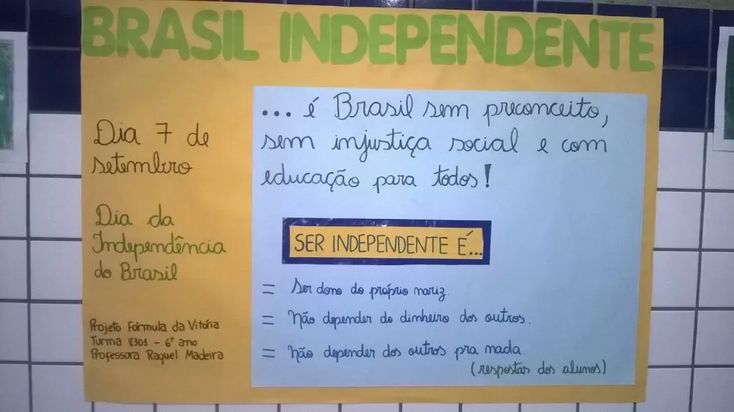 BRASIL INDEPENDENTE
Dia 7 de
setembro
Dia da
Independência
do Brasil
Projeto Fórmula da Vitória
Turma 8301 - 6º ano
Professora Raquel Madeira
... é Brasil sem preconceito,
sem injustiça social e com
educação para todos!
SER INDEPENDENTE É...
= Ser dono do próprio nariz.
= Não depender do dinheiro dos outros.
= Não depender dos outros pra nada.
(respostas dos alunos)